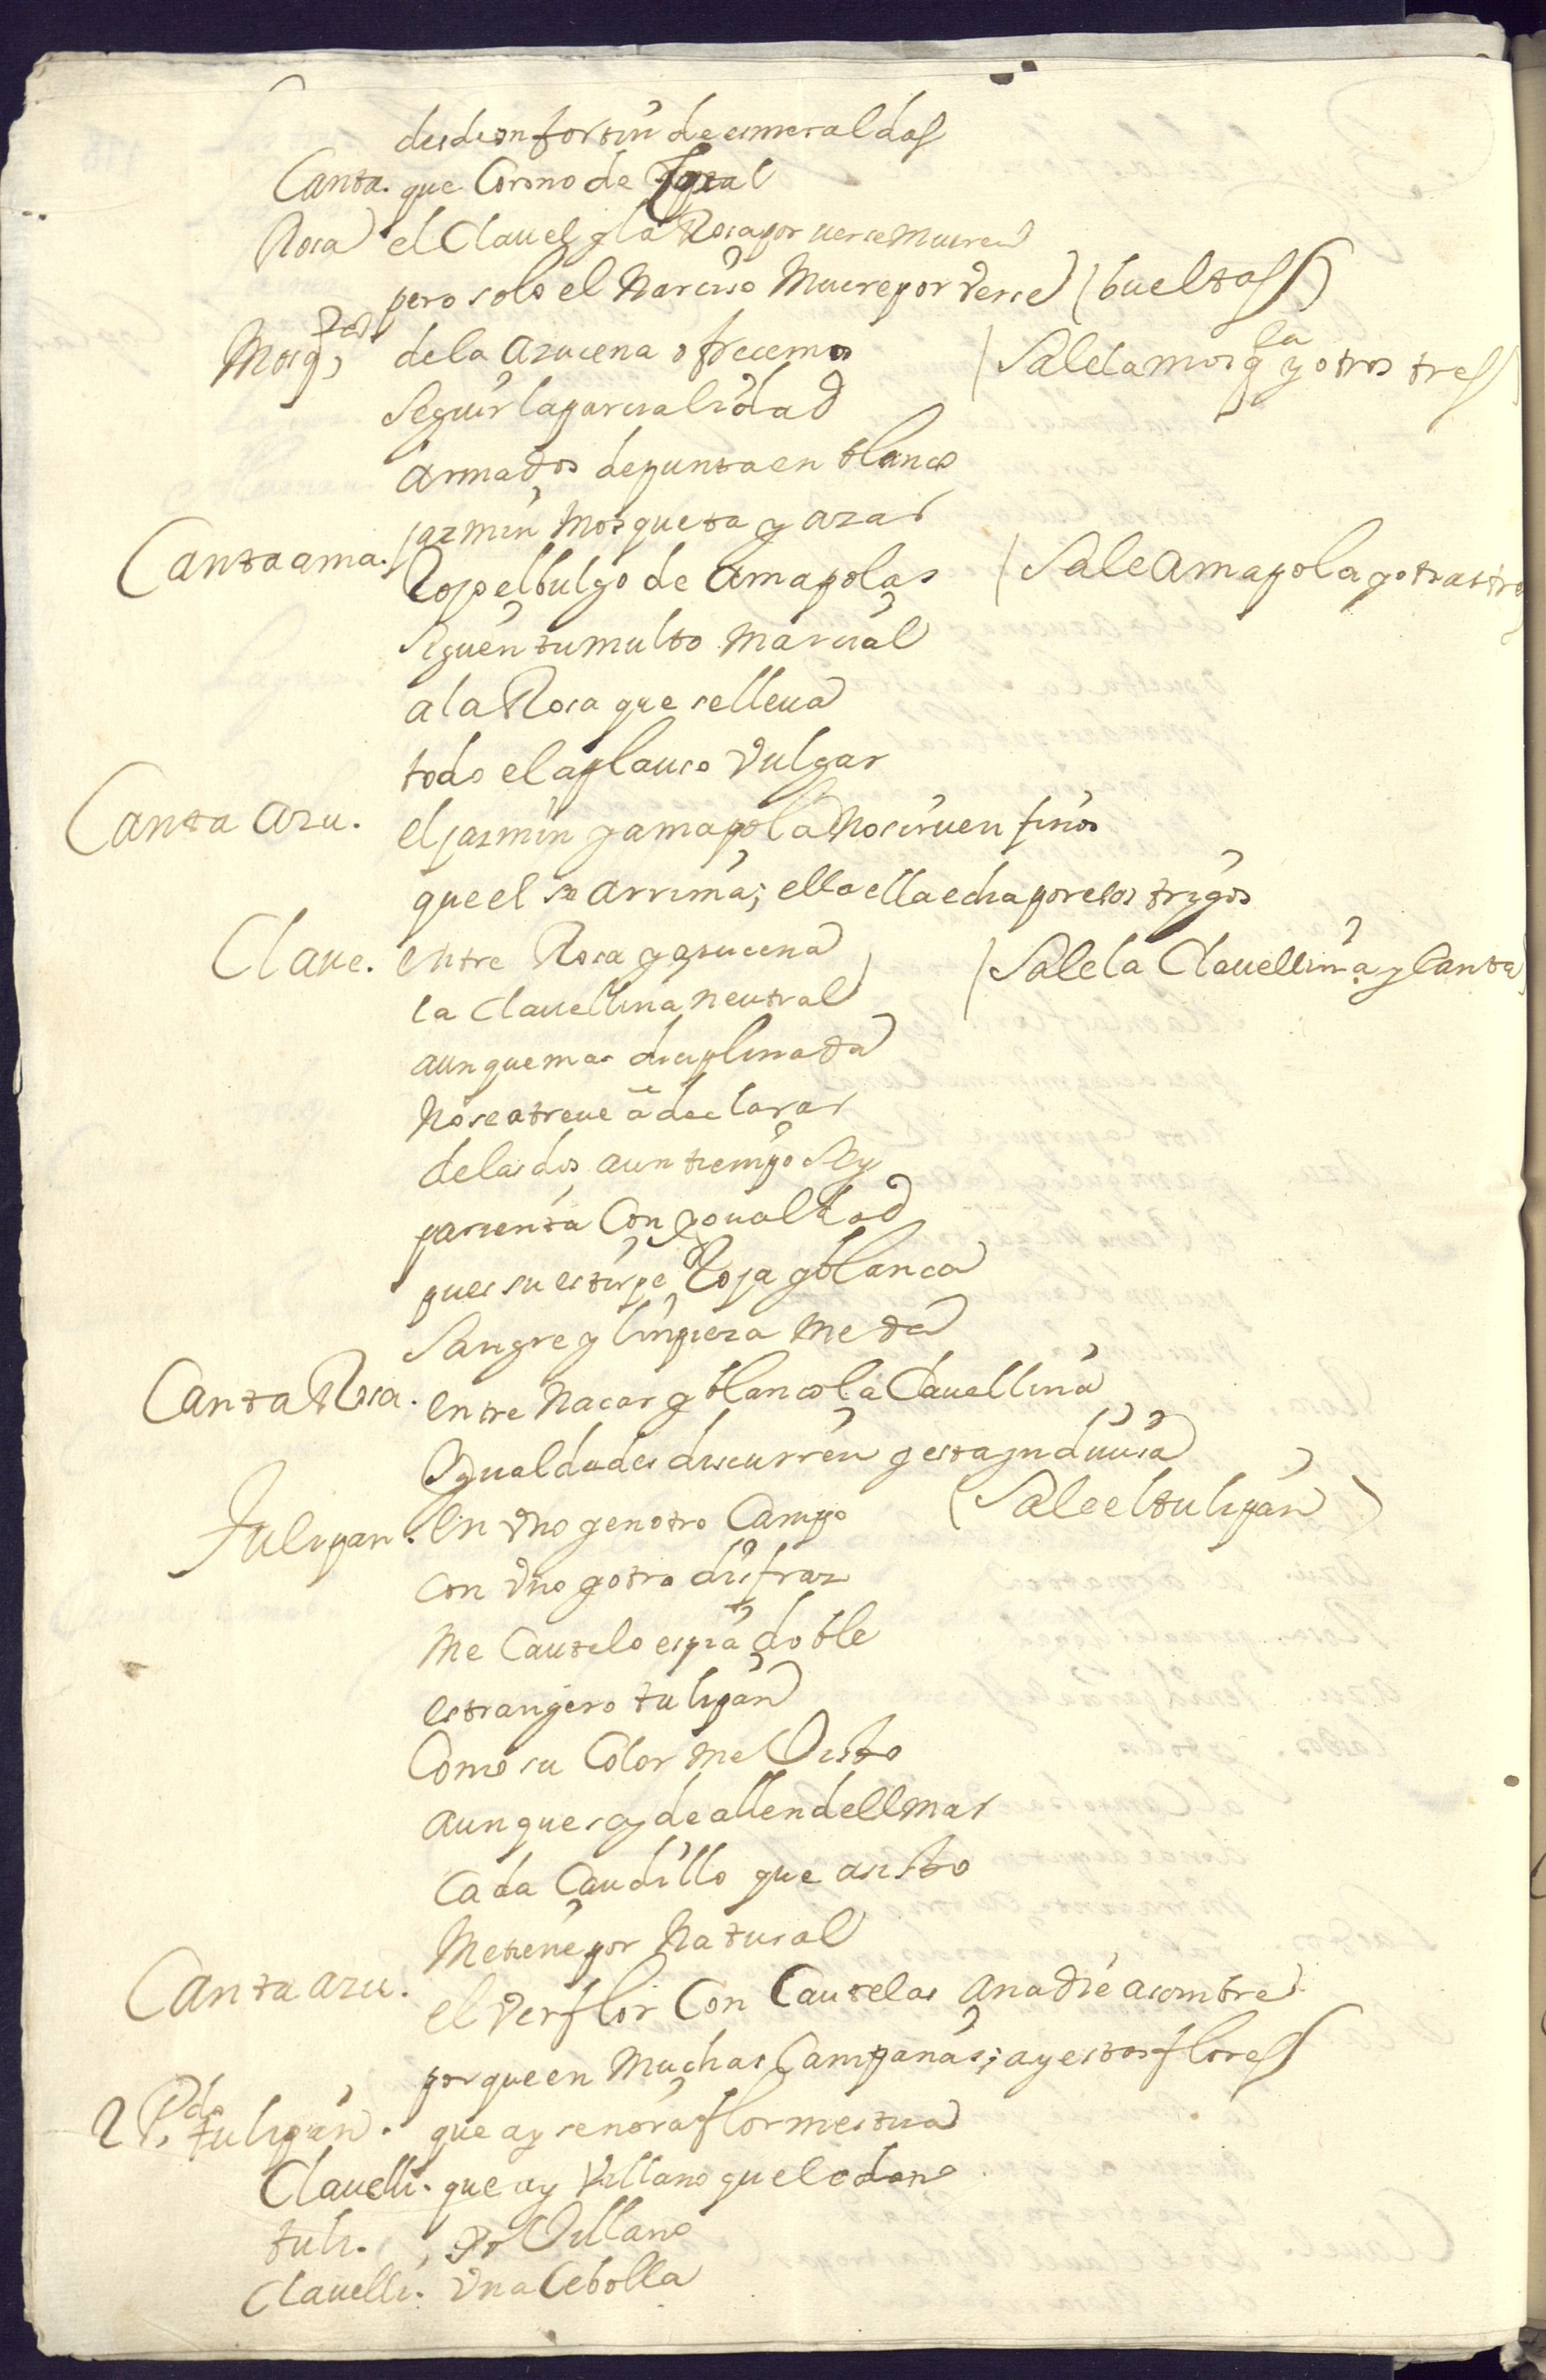 desde un fortin de esmeraldas
Canta. que Corono de
Rosa el Clauel y la Rosa por uerse mueren
pero solo el Narciso Muere por verse (bueltas)
Mosq.ta de la azucena ofrecemos (Sale la mosq.ta y otros tres)
Seguir la parcialidad
armados de punta en blanco
jazmin Mosqueta y azar
Canta ama. Rojo el bulgo de amapolas (Sale Amapola y otras tres
Siguen tumulto Marcial
a la Rosa que se lleua
todo el aplauso vulgar
Canta azu. el jazmin y amapola No siruen finos
que el se arrima; ella ella echa por esos trigos
Claue. entre Rosa y azucena (Sale la Clauellina y Canta)
la Clauellina neutral
aunque mas disciplinada
No se atreue a declarar
de las dos a un tiempo Soy
parienta Con ygualdad
pues su estirpe Roja y blanca
Sangre y limpieza Me da
Canta Rosa. entre Nacar y blanco la Clauellina
Ygualdades discurren y esta yndiuisa
Tulipan. En vno y en otro Campo (Sale el tulipan)
con vno y otro disfraz
Me Cautelo espia doble
estranjero tulipan
Como su Color me Visto
aunque soy de allende el mar
Cada Caudillo que asisto
Me tiene por Natural
Canta azu. el ver flor Con Cautelas a nadie asombre
porque en Muchas Campanas; ay estas flores
2 P.do tulipan. que ay señora flor mestiza
Clauelli. que ay Villano quelodono
tuli. Yo Villano
Clauelli. vna Cebolla